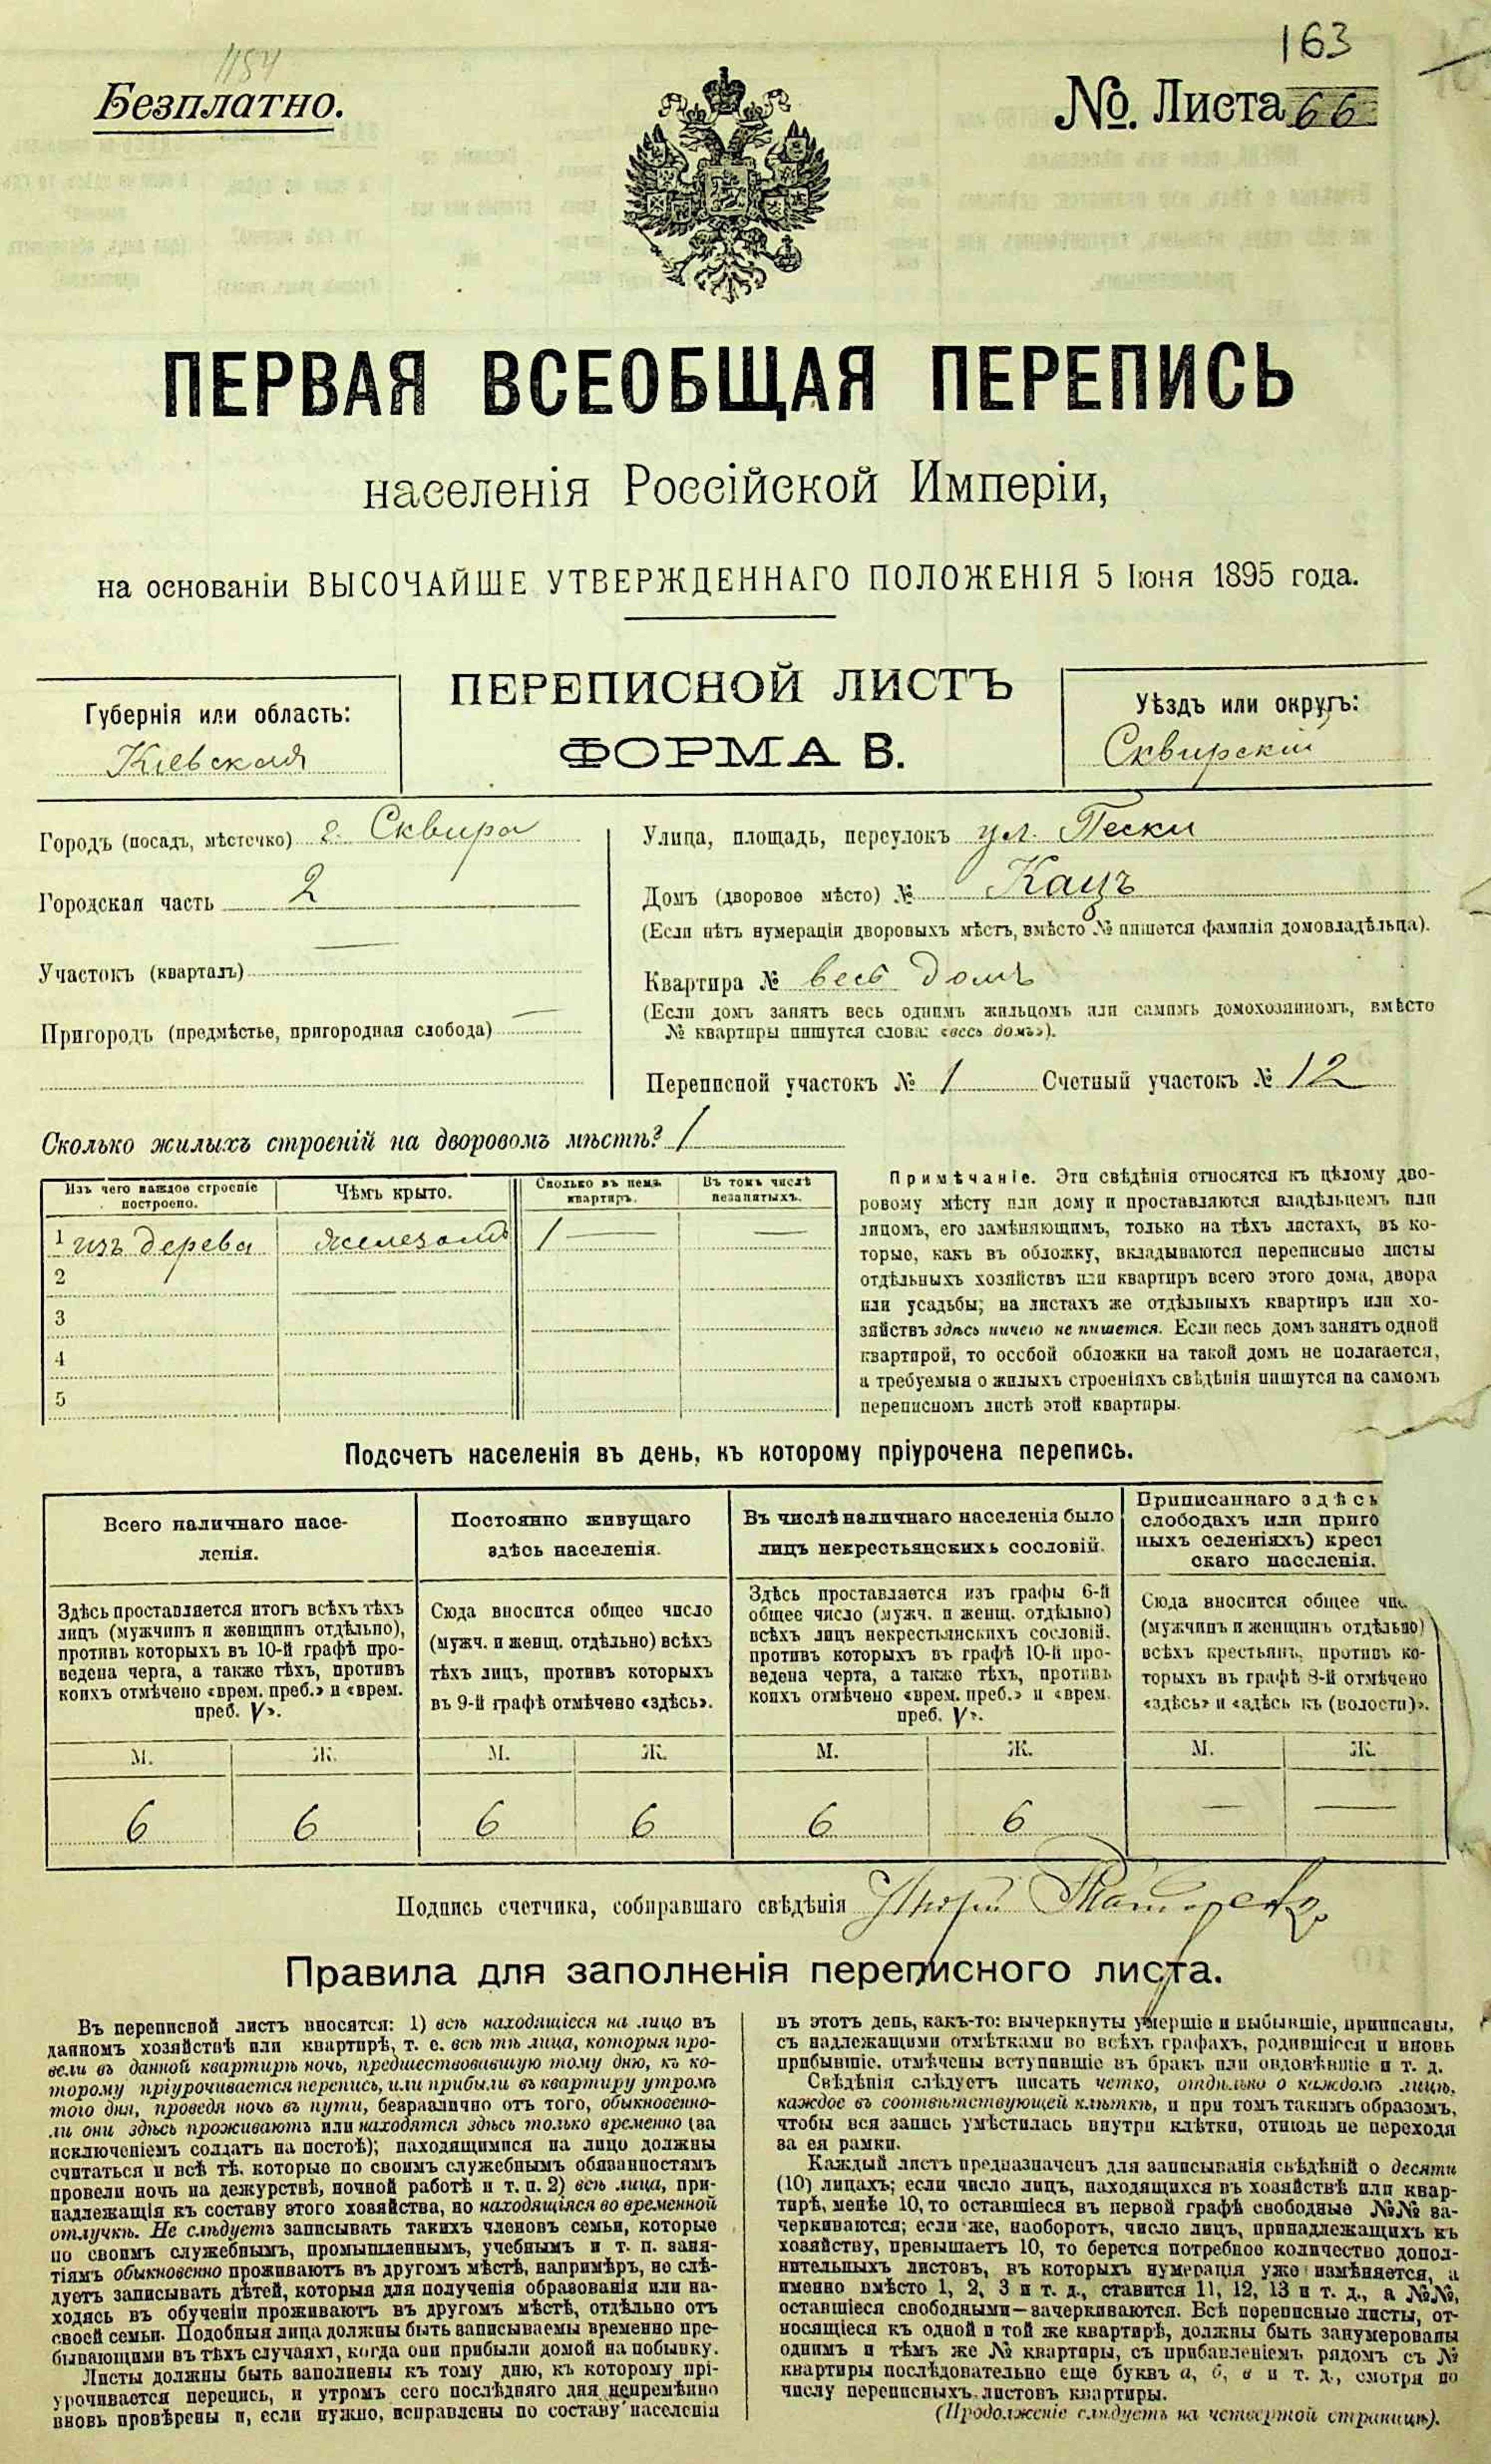 163
1154
Безплатно.
№. Листа 66
ПЕРВАЯ ВСЕОБЩАЯ ПЕРЕПИСЬ
населенія Россійской Имперіи,
на основаніи ВЫСОЧАЙШЕ УТВЕРЖДЕННАГО ПОЛОЖЕНІЯ 5 Іюня 1895 года.
ПЕРЕПИСНОЙ ЛИСТЪ
ФОРМА В.
Губернія или область:
Кіевская
Уѣздъ или округъ:
Сквирскій
Городъ (посадъ, мѣстечко) г. Сквира
Городская часть 2
Участокъ (кварталъ) —
Пригородъ (предмѣстье, пригородная слобода) —
Улица, площадь, переулокъ ул. Пески
Домъ (дворовое мѣсто) № Кацъ
(Если нѣтъ нумераціи дворовыхъ мѣстъ, вмѣсто № пишется фамилія домовладѣльца).
Квартира № весь домъ
(Если домъ занятъ весь однимъ жильцомъ или самимъ домохозяиномъ, вмѣсто
№ квартиры пишутся слова: «весь домъ»).
Переписной участокъ № 1 Счетный участокъ № 12
Сколько жилыхъ строеній на дворовомъ мѣстѣ? 1
Изъ чего каждое строеніе построено.
Чѣмъ крыто.
Сколько въ немъ квартиръ.
Въ томъ числѣ незанятыхъ.
1 изъ дерева железомъ 1 — —
2
3
4
5
Примѣчаніе. Эти свѣдѣнія относятся къ цѣлому дво-
ровому мѣсту или дому и проставляются владѣльцемъ или
лицомъ, его замѣняющимъ, только на тѣхъ листахъ, въ ко-
торые, какъ въ обложку, вкладываются переписные листы
отдѣльныхъ хозяйствъ или квартиръ всего этого дома, двора
или усадьбы; на листахъ же отдѣльныхъ квартиръ или хо-
зяйствъ здѣсь ничего не пишется. Если весь домъ занятъ одной
квартирой, то особой обложки на такой домъ не полагается,
а требуемыя о жилыхъ строеніяхъ свѣдѣнія пишутся на самомъ
переписномъ листѣ этой квартиры.
Подсчетъ населенія въ день, къ которому пріурочена перепись.
Всего наличнаго насе-
ленія.
Здѣсь проставляется итогъ всѣхъ тѣхъ
лицъ (мужчинъ и женщинъ отдѣльно),
противъ которыхъ въ 10-й графѣ про-
ведена черта, а также тѣхъ, противъ
коихъ отмѣчено «врем. преб.» и «врем.
преб. V».
Постоянно живущаго
здѣсь населенія.
Сюда вносится общее число
(мужч. и женщ. отдѣльно) всѣхъ
тѣхъ лицъ, противъ которыхъ
въ 9-й графѣ отмѣчено «здѣсь».
Въ числѣ наличнаго населенія было
лицъ некрестьянскихъ сословій.
Здѣсь проставляется изъ графы 6-й
общее число (мужч. и женщ. отдѣльно)
всѣхъ лицъ некрестьянскихъ сословій,
противъ которыхъ въ графѣ 10-й про-
ведена черта, а также тѣхъ, противъ
коихъ отмѣчено «врем. преб.» и «врем.
преб. V».
Приписаннаго здѣсь
слободахъ или приго
ныхъ селеніяхъ) крест
скаго населенія.
Сюда вносится общее чис
(мужчинъ и женщинъ отдѣльно)
всѣхъ крестьянъ, противъ ко-
торыхъ въ графѣ 8-й отмѣчено
«здѣсь» и «здѣсь къ (волости)».
М. Ж. М. Ж. М. Ж. М. Ж.
6 6 6 6 6 6 — —
Подпись счетчика, собиравшаго свѣдѣнія
Правила для заполненія переписного листа.
Въ переписной листъ вносятся: 1) всѣ находящіеся на лицо въ
данномъ хозяйствѣ или квартирѣ, т. е. всѣ тѣ лица, которыя про-
вели въ данной квартирѣ ночь, предшествовавшую тому дню, къ ко-
торому пріурочивается перепись, или прибыли въ квартиру утромъ
того дня, проведя ночь въ пути, безразлично отъ того, обыкновенно-
ли они здѣсь проживаютъ или находятся здѣсь только временно (за
исключеніемъ солдатъ на постоѣ); находящимися на лицо должны
считаться и всѣ тѣ, которые по своимъ служебнымъ обязанностямъ
провели ночь на дежурствѣ, ночной работѣ и т. п. 2) всѣ лица, при-
надлежащія къ составу этого хозяйства, но находящіяся во временной
отлучкѣ. Не слѣдуетъ записывать такихъ членовъ семьи, которые
по своимъ служебнымъ, промышленнымъ, учебнымъ и т. п. заня-
тіямъ обыкновенно проживаютъ въ другомъ мѣстѣ, напримѣръ, не слѣ-
дуетъ записывать дѣтей, которыя для полученія образованія или на-
ходясь въ обученіи проживаютъ въ другомъ мѣстѣ, отдѣльно отъ
своей семьи. Подобныя лица должны быть записываемы временно пре-
бывающими въ тѣхъ случаяхъ, когда они прибыли домой на побывку.
Листы должны быть заполнены къ тому дню, къ которому прі-
урочивается перепись, и утромъ сего послѣдняго дня непремѣнно
вновь провѣрены и, если нужно, исправлены по составу населенія
въ этотъ день, какъ-то: вычеркнуты умершіе и выбывшіе, приписаны,
съ надлежащими отмѣтками во всѣхъ графахъ, родившіеся и вновь
прибывшіе, отмѣчены вступившіе въ бракъ или овдовѣвшіе и т. д.
Свѣдѣнія слѣдуетъ писать четко, отдѣльно о каждомъ лицѣ,
каждое въ соотвѣтствующей клѣткѣ, и при томъ такимъ образомъ,
чтобы вся запись умѣстилась внутри клѣтки, отнюдь не переходя
за ея рамки.
Каждый листъ предназначенъ для записыванія свѣдѣній о десяти
(10) лицахъ; если число лицъ, находящихся въ хозяйствѣ или квар-
тирѣ, менѣе 10, то оставшіеся въ первой графѣ свободные №№ за-
черкиваются; если же, наоборотъ, число лицъ, принадлежащихъ къ
хозяйству, превышаетъ 10, то берется потребное количество допол-
нительныхъ листовъ, въ которыхъ нумерація уже измѣняется, а
именно вмѣсто 1, 2, 3 и т. д., ставится 11, 12, 13 и т. д., а №№,
оставшіеся свободными—зачеркиваются. Всѣ переписные листы, от-
носящіеся къ одной и той же квартирѣ, должны быть занумерованы
однимъ и тѣмъ же № квартиры, съ прибавленіемъ рядомъ съ №
квартиры послѣдовательно еще буквъ а, б, в и т. д., смотря по
числу переписныхъ листовъ квартиры.
(Продолженіе слѣдуетъ на четвертой страницѣ).